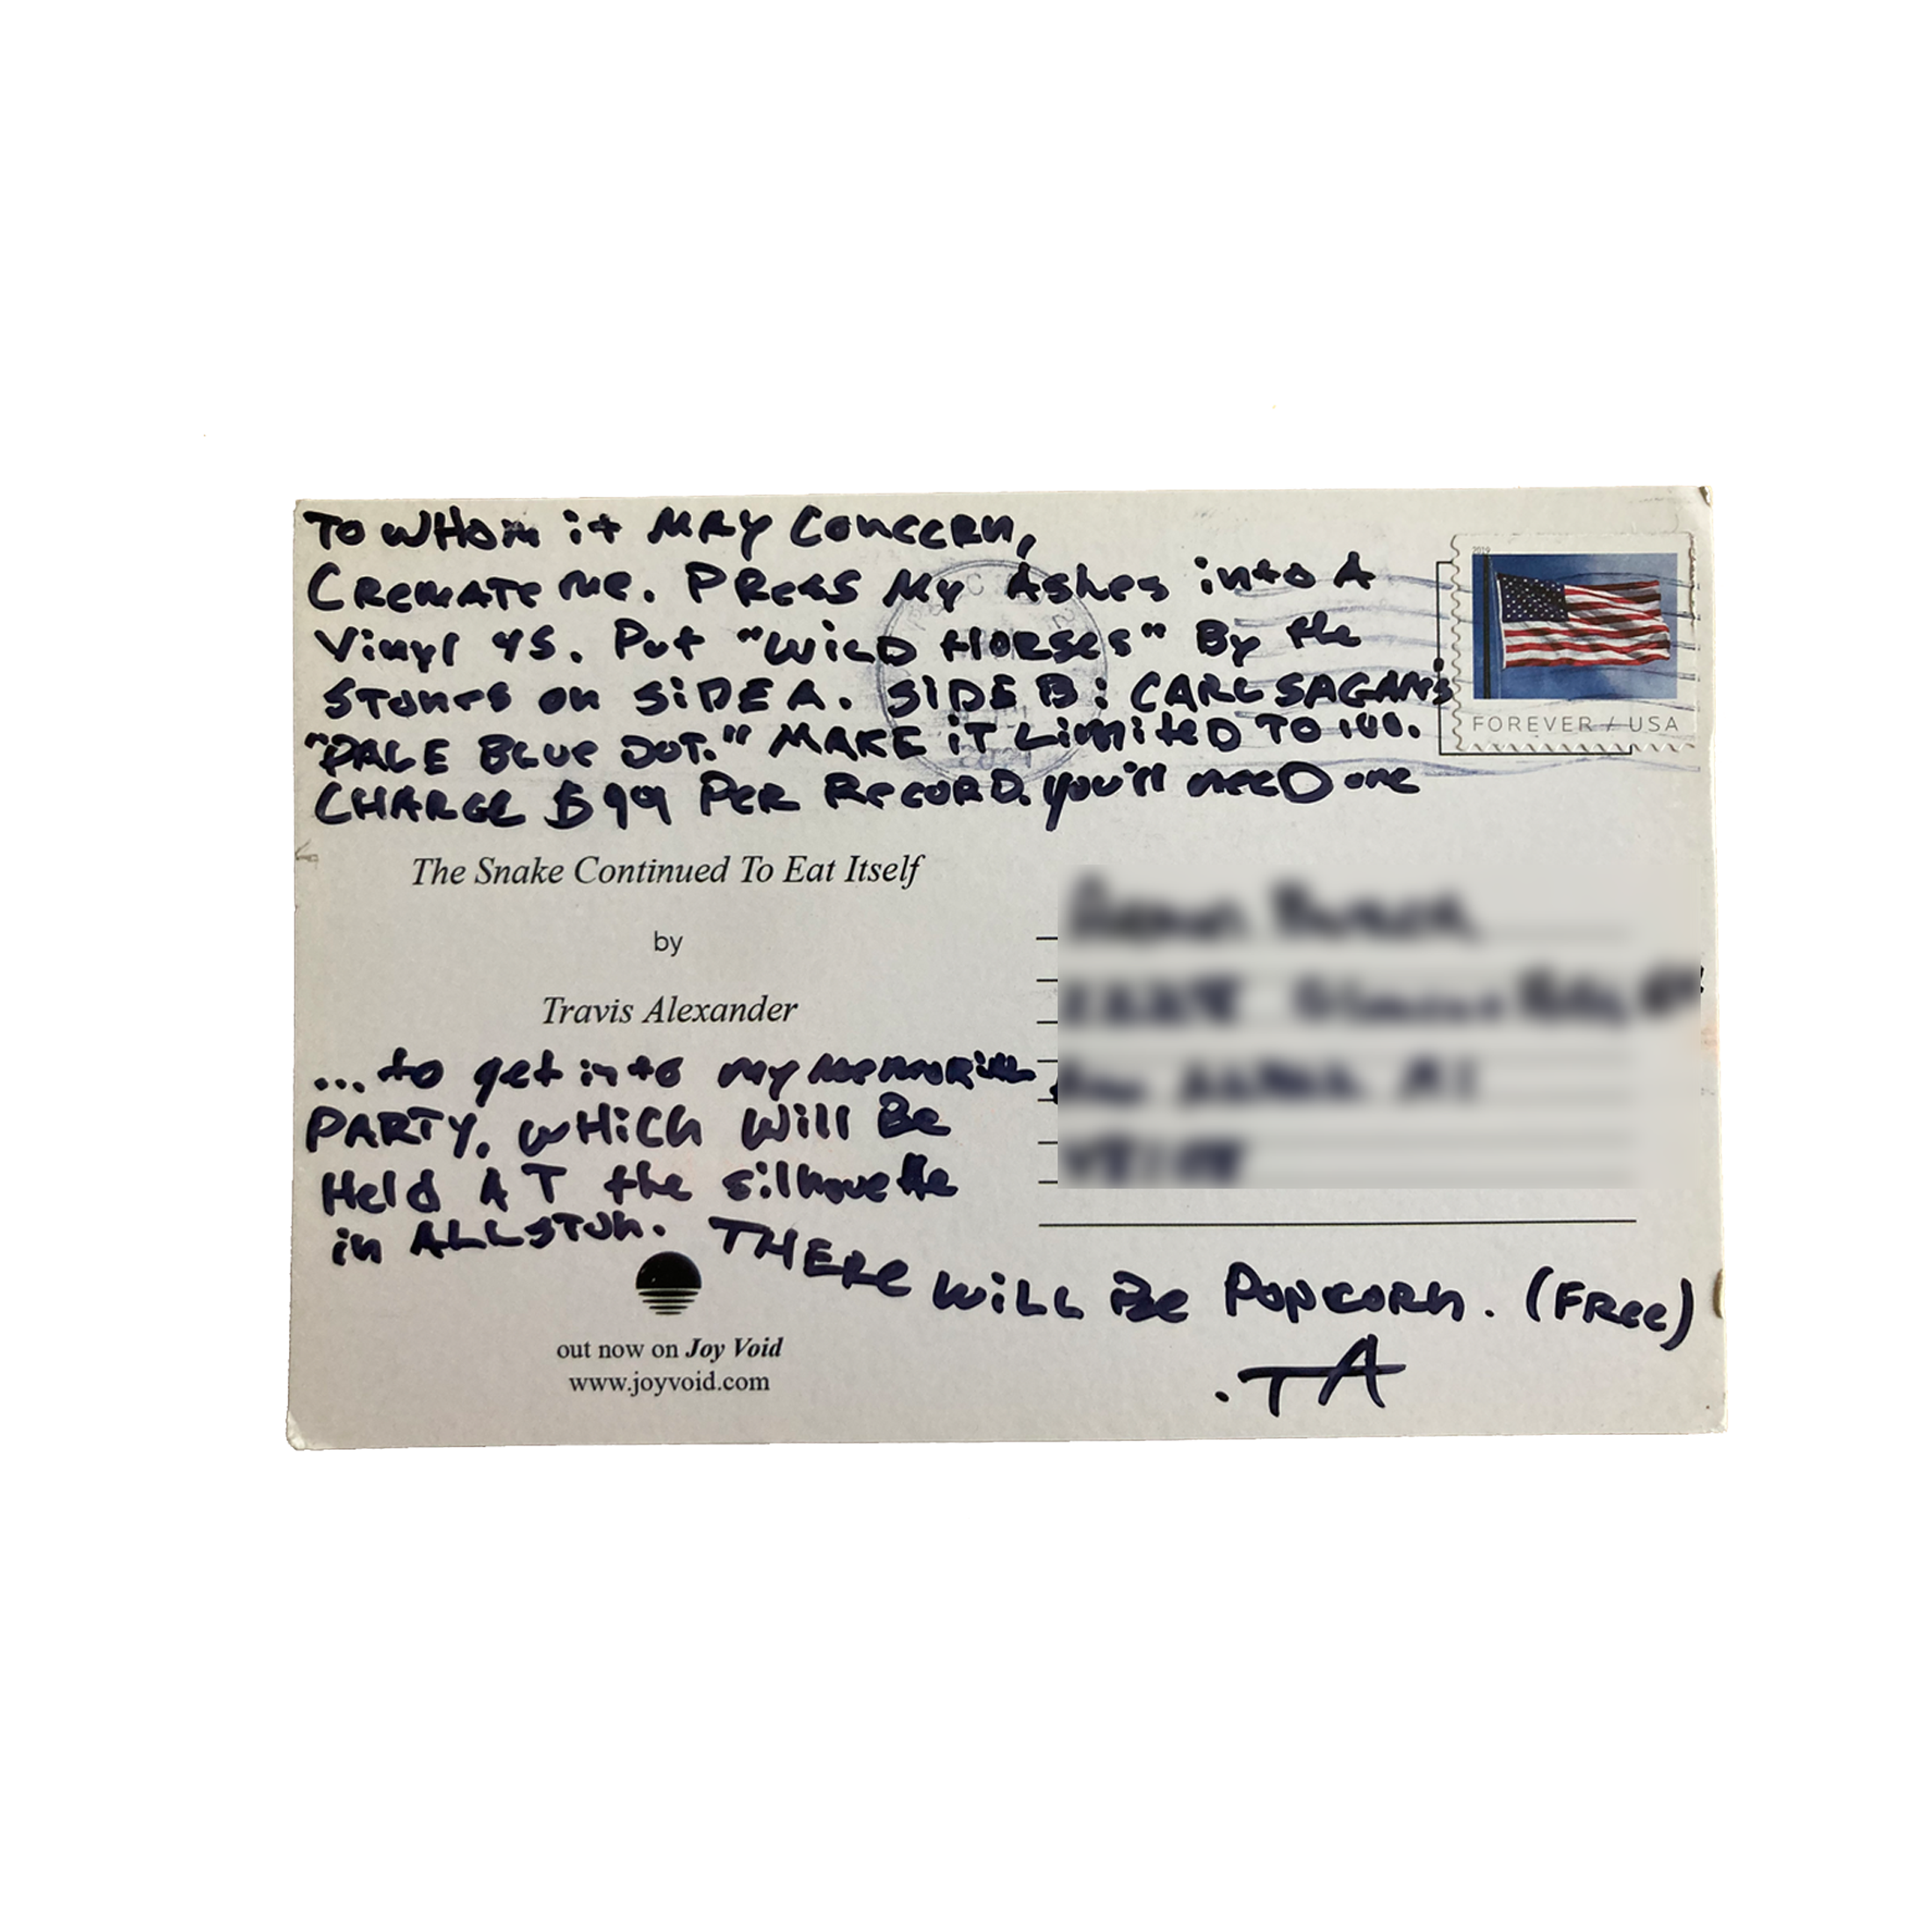 To WHom it MAY Concern,
CremATe me. PRess My Ashes into A
Vinyl 45. Put "WilD Horses" By the
Stones on SiDE A. SIDE B: CARL SAGAN'S
"PALE BLUe DOT." MAKE iT LimiteD TO 100.
CHARGe $99 PeR RecorD. you'll neeD one
2019
FOREVER / USA
The Snake Continued To Eat Itself
by
Travis Alexander
...to get into my memorial
PARTY, WHiCh Will Be
Held AT the silhouette
in ALLSTon. THERe WiLL Be Popcorn. (Free)
.TA
out now on Joy Void
www.joyvoid.com